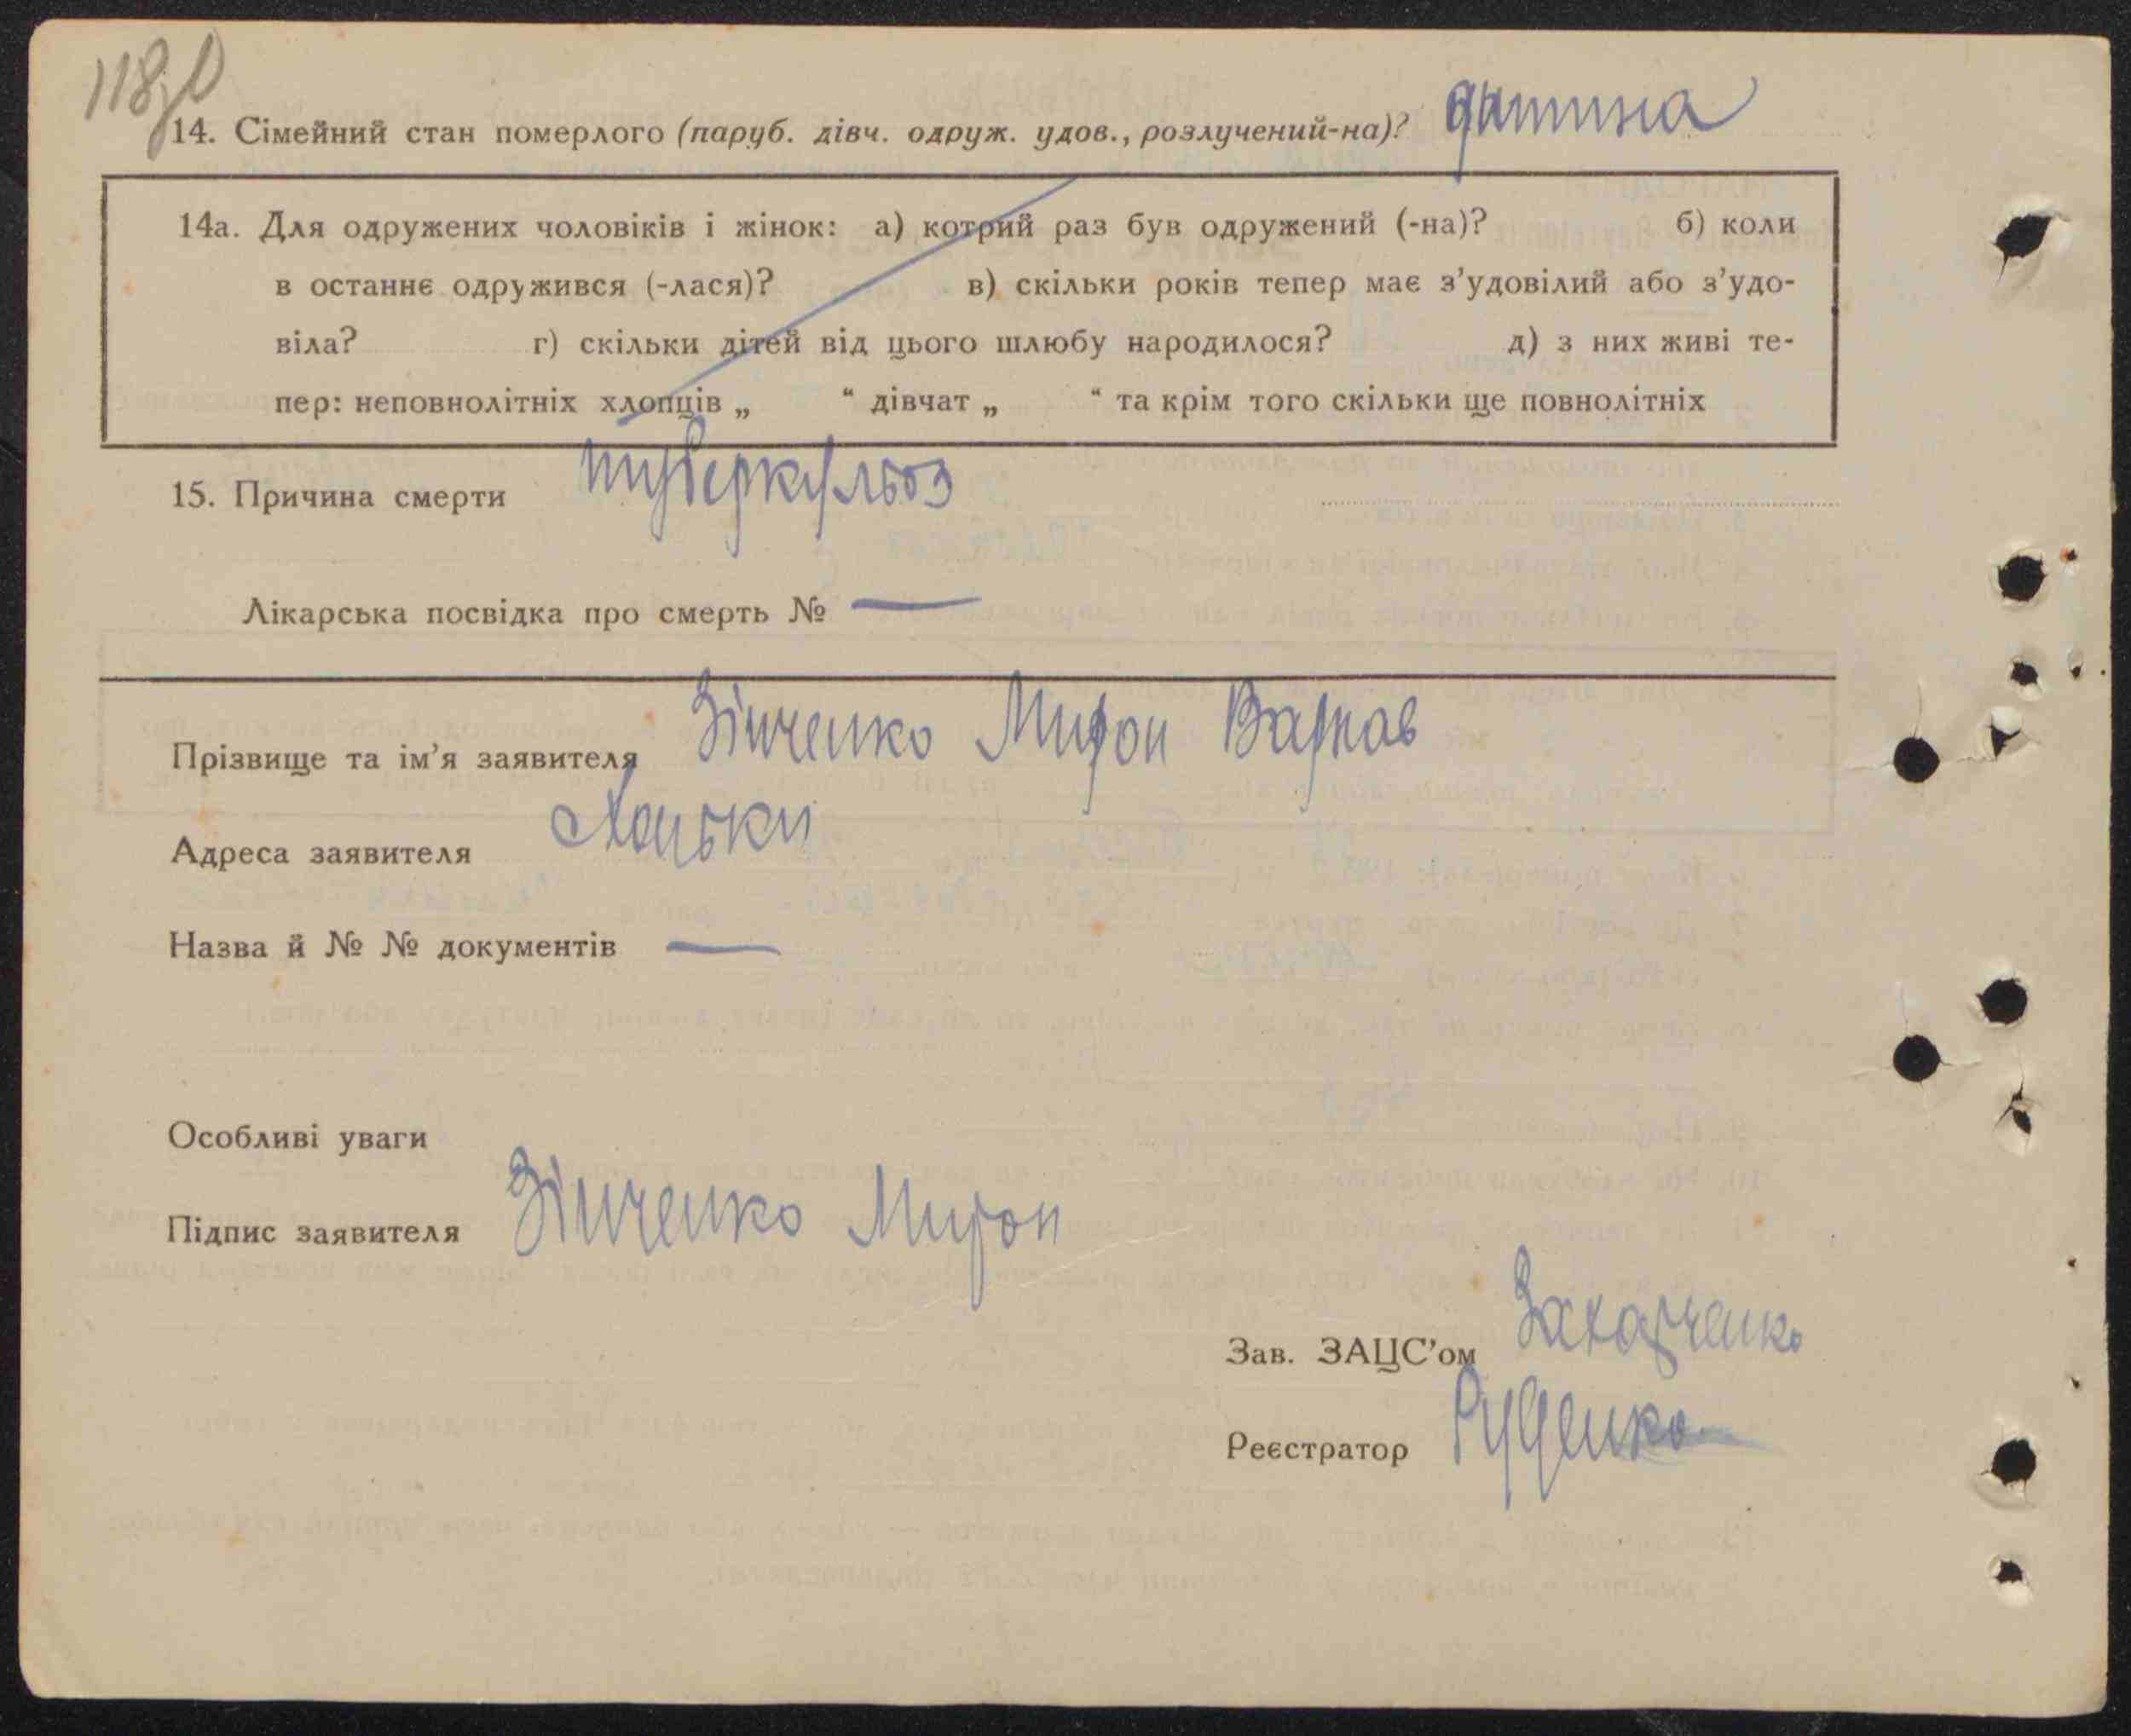 118
14. Сімейний стан померлого (паруб. дівч. одруж. удов., розлучений-на)? дитина
14а. Для одружених чоловіків і жінок: а) котрий раз був одружений (-на)? б) коли
в останнє одружився (-лася)? в) скільки років тепер має з'удовілий або з'удо-
віла? г) скільки дітей від цього шлюбу народилося? д) з них живі те-
пер: неповнолітніх хлопців „ “ дівчат „ “ та крім того скільки ще повнолітніх
15. Причина смерти туберкульоз
Лікарська посвідка про смерть № —
Прізвище та ім'я заявителя Зінченко Мирон Варнав
Адреса заявителя Хоньки
Назва й № № документів —
Особливі уваги
Підпис заявителя Зінченко Мирон
Зав. ЗАЦС'ом Захарченко
Реєстратор Руденко